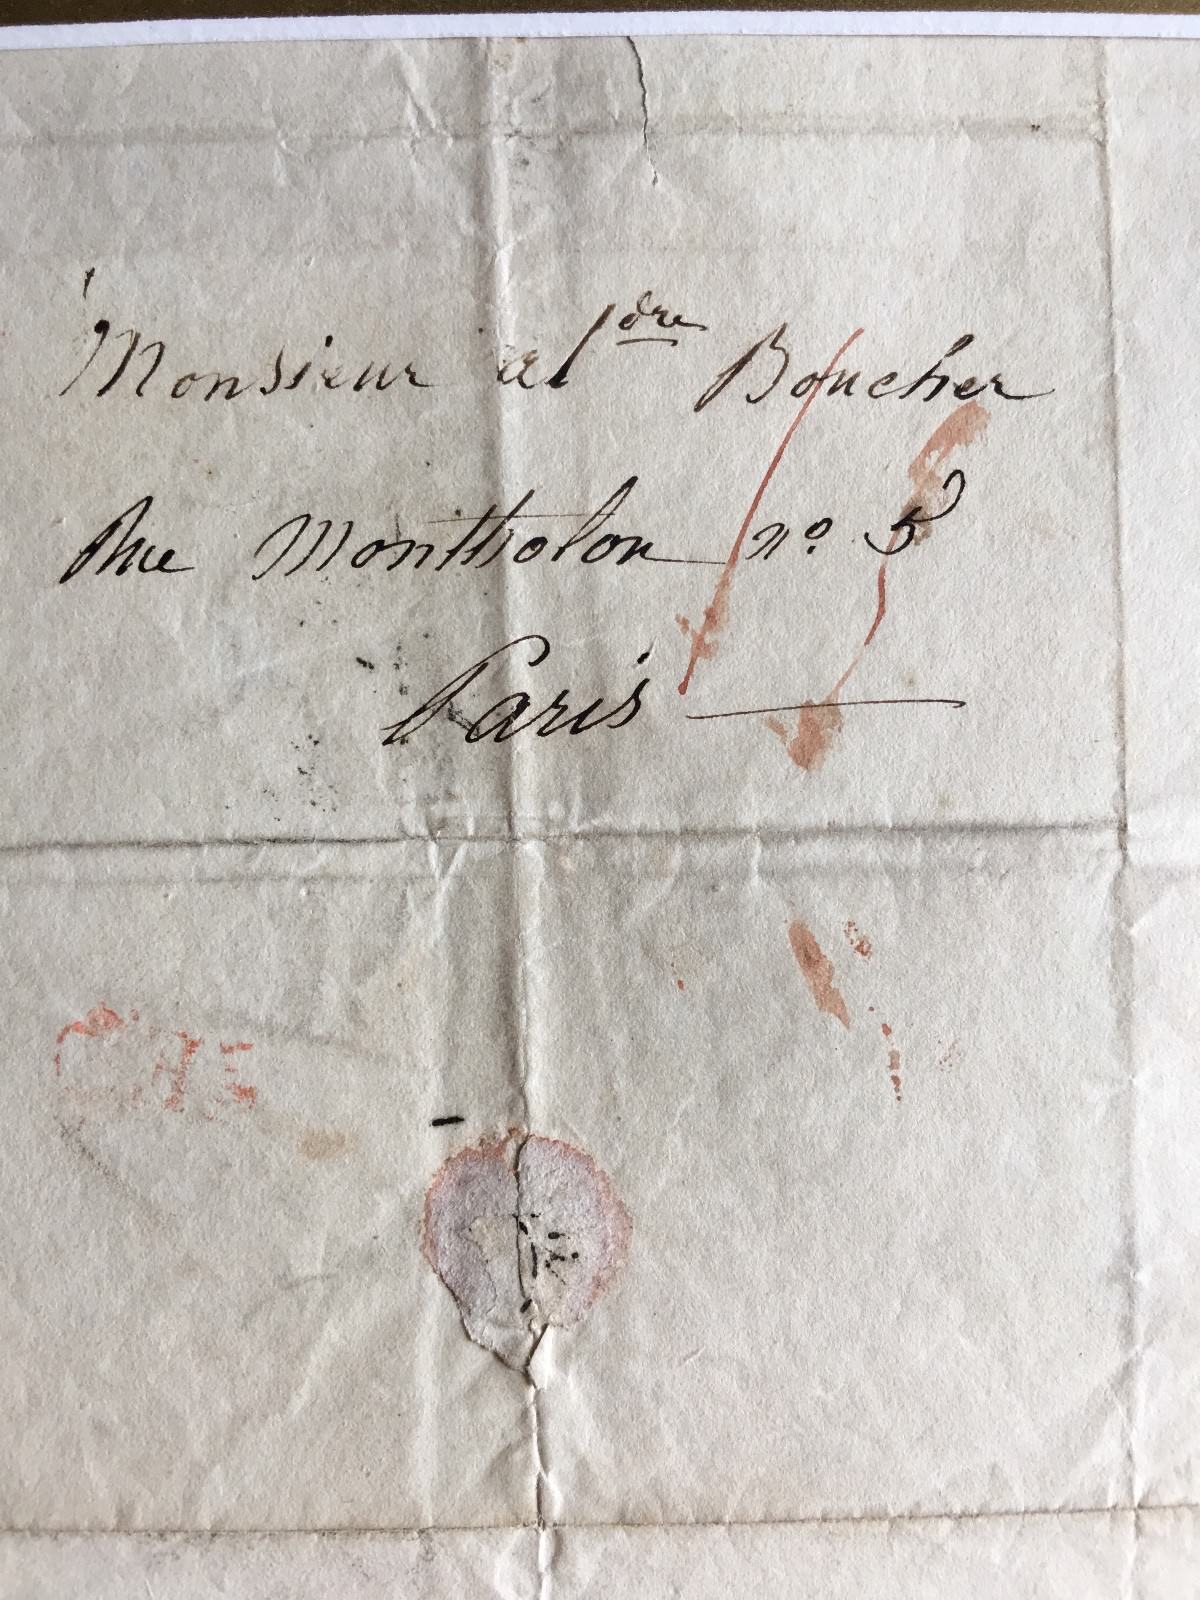 Monsieur al^dre Boucher
Rue Montholon n° 5
Paris